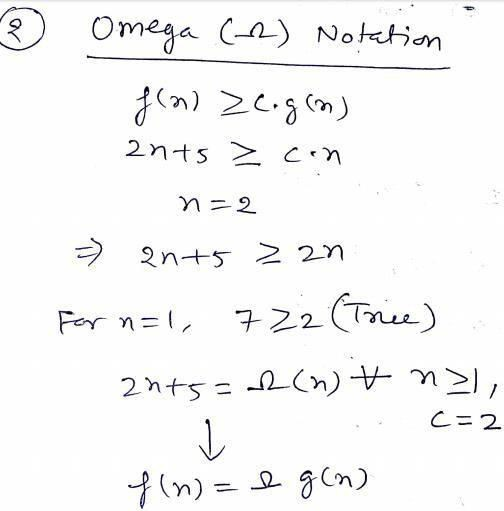 ② Omega (Ω) Notation
f(n) ≥ c.g(n)
2n+5 ≥ c·n
n=2
⇒ 2n+5 ≥ 2n
For n=1, 7≥2 (True)
2n+5 = Ω(n) ∀ n≥1,
c=2
↓
f(n) = Ω g(n)